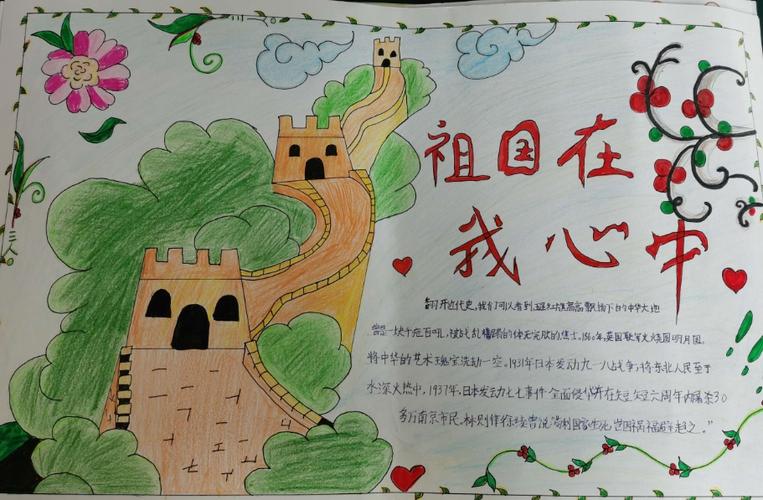 祖国在
我心中
翻开近代史,我们可以看到五星红旗高高飘扬下的中华大地
曾是一块千疮百孔,被战乱蹂躏的体无完肤的焦土。1860年,英国联军火烧圆明月园,
将中华的艺术瑰宝洗劫一空。1931年日本发动九一八战争,将东北人民至于
水深火热中,1937年,日本发动七七事件全面侵华,并在短短六周年内屠杀30
多万南京市民。林则徐曾说"苟利国家生死岂因祸福避趋之。"